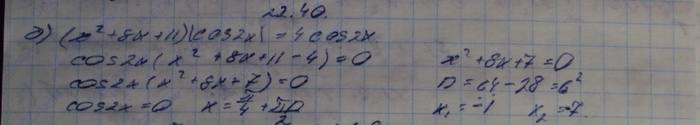 22.40.
д) (x² + 8x + 11)|cos2x| = 4cos2x
cos2x(x² + 8x + 11 - 4) = 0
cos2x(x² + 8x + 7) = 0
cos2x = 0 x = π/4 + πn/2
x² + 8x + 7 = 0
D = 64 - 28 = 6²
x₁ = -1 x₂ = -7